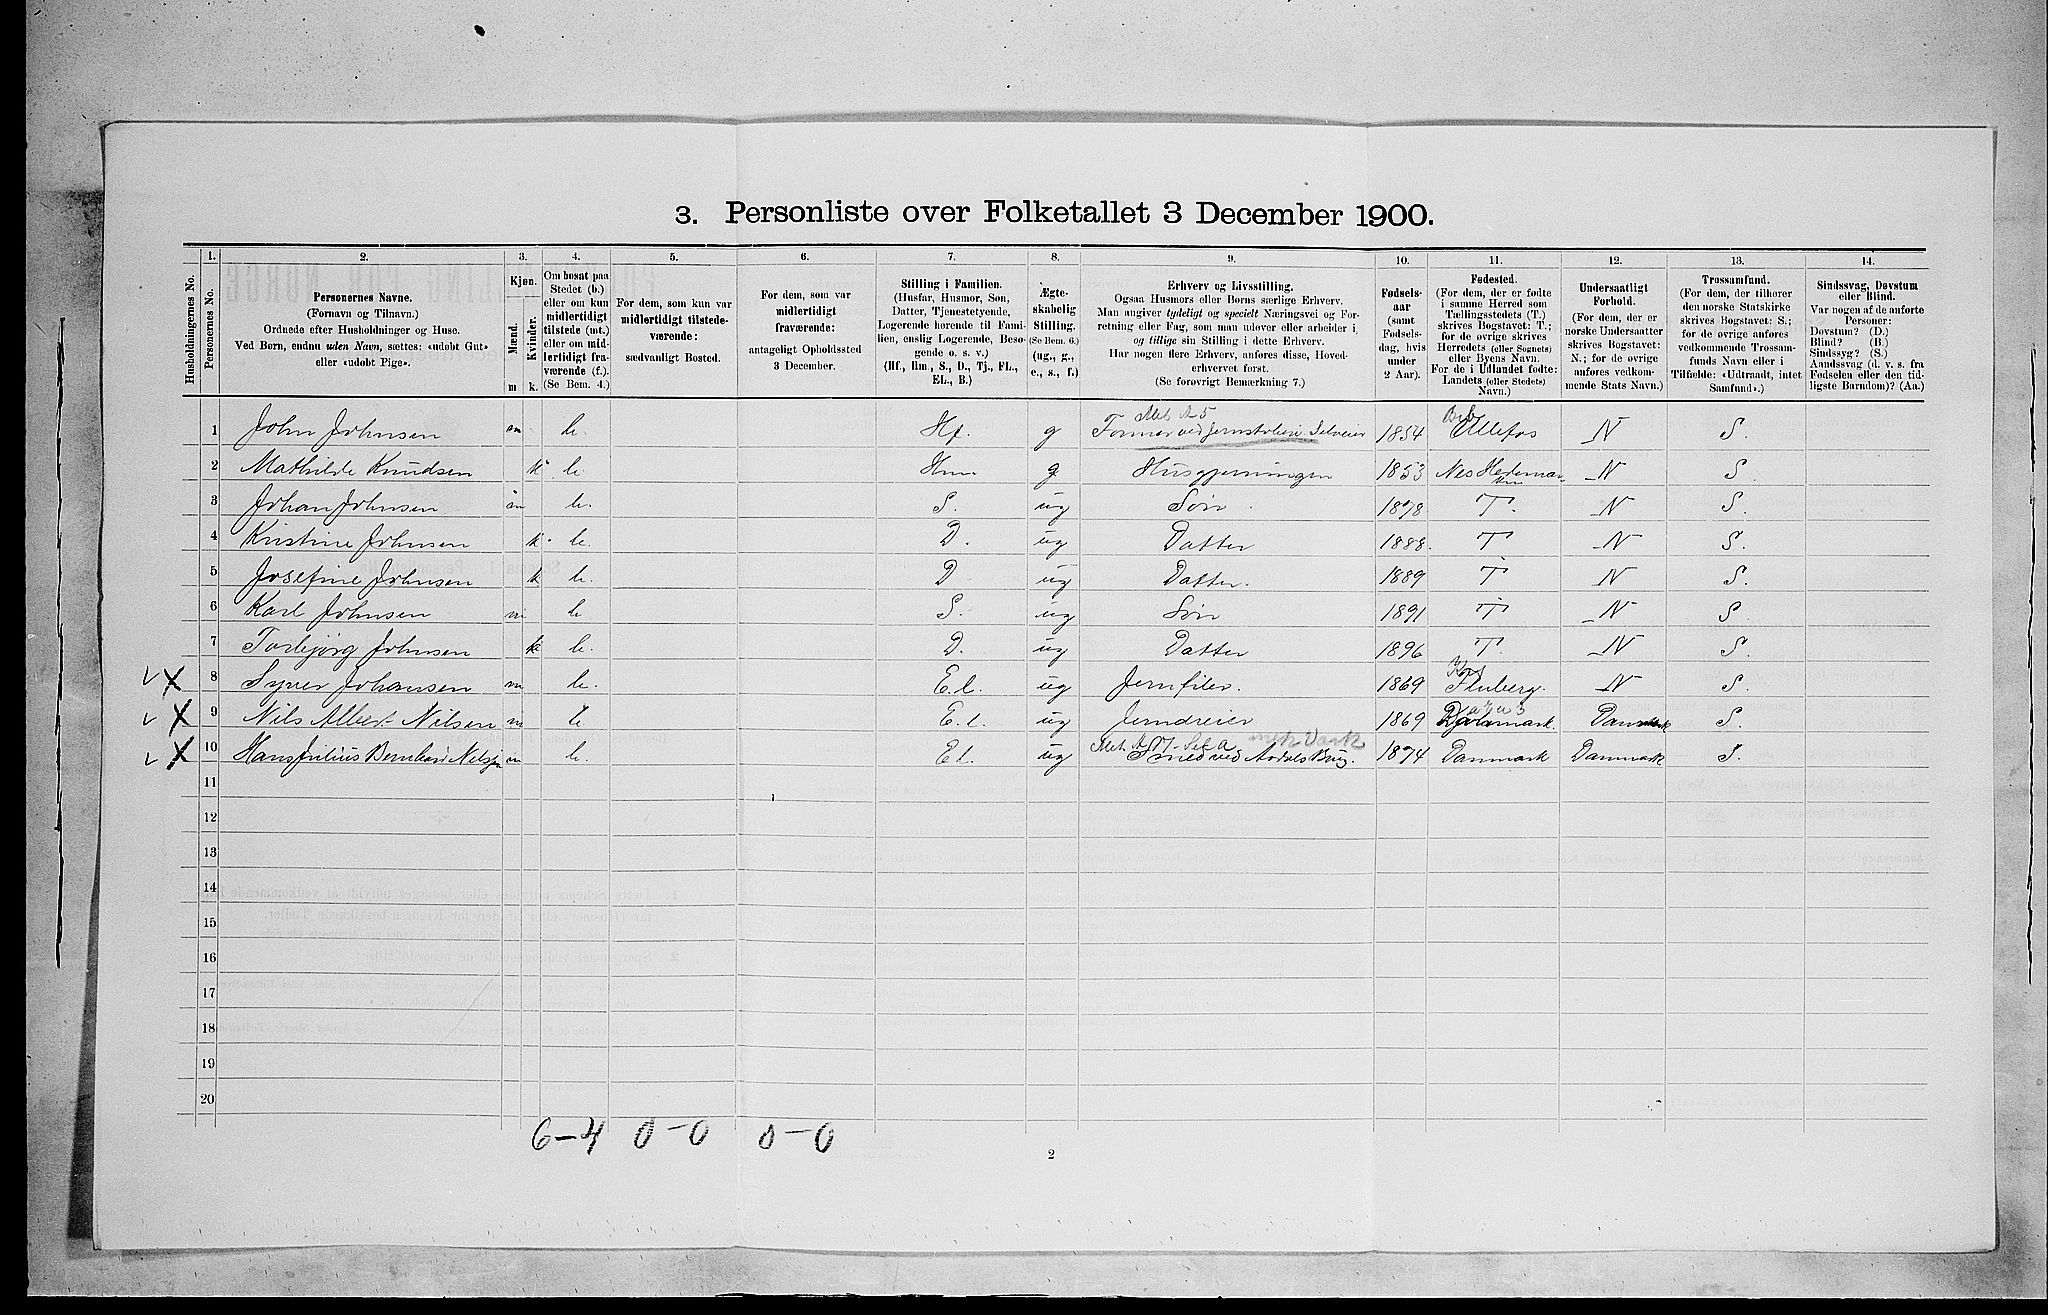 3. Personliste over Folketallet 3 December 1900.
Husholdningernes No.
1.
Personernes No.
2.
Personernes Navne.
(Fornavn og Tilnavn.)
Ordnede efter Husholdninger og Huse.
Ved Børn, endnu uden Navn, sættes: «udøbt Gut»
eller «udøbt Pige».
3.
Kjøn.
Mænd.
Kvinder.
m
k.
4.
Om bosat paa
Stedet (b.)
eller om kun
midlertidigt
tilstede (mt.)
eller om mid-
lertidigt fra-
værende (f.).
(Se Bem. 4.)
5.
For dem, som kun var
midlertidigt tilstede-
værende:
sædvanligt Bosted.
6.
For dem, som var
midlertidigt
fraværende:
antageligt Opholdssted
3 December.
7.
Stilling i Familien.
(Husfar, Husmor, Søn,
Datter, Tjenestetyende,
Logerende hørende til Fami-
lien, enslig Logerende, Besø-
gende o. s. v.)
(Hf., Hm., S., D., Tj., FL.,
EL., B.)
8.
Ægte-
skabelig
Stilling.
(Se Bem. 6.)
(ug., g.,
e., s., f.)
9.
Erhverv og Livsstilling.
Ogsaa Husmors eller Børns særlige Erhverv.
Man angiver tydeligt og specielt Næringsvei og For-
retning eller Fag, som man udøver eller arbeider i,
og tillige sin Stilling i dette Erhverv.
Har nogen flere Erhverv, anføres disse, Hoved-
erhvervet først.
(Se forøvrigt Bemærkning 7.)
10.
Fødsels-
aar
(samt
Fødsels-
dag, hvis
under
2 Aar).
11.
Fødested.
(For dem, der er fødte
i samme Herred som
Tællingsstedets (T.)
skrives Bogstavet: T.;
for de øvrige skrives
Herredets (eller Sognets)
eller Byens Navn.
For de i Udlandet fødte:
Landets (eller Stedets)
Navn.)
12.
Undersaatligt
Forhold.
(For dem, der er
norske Undersaatter
skrives Bogstavet:
N.; for de øvrige
anføres vedkom-
mende Stats Navn.)
13.
Trossamfund.
(For dem, der tilhører
den norske Statskirke
skrives Bogstavet: S.;
for de øvrige anføres
vedkommende Trossam-
funds Navn eller i
Tilfælde: «Udtraadt, intet
Samfund».)
14.
Sindssvag, Døvstum
eller Blind.
Var nogen af de anførte
Personer:
Døvstum? (D.)
Blind? (B.)
Sindssyg? (S.)
Aandssvag (d. v. s. fra
Fødselen eller den tid-
ligste Barndom)? (Aa.)
1 John Johnsen m b. Hf. g Former ved Jernstøberi 1854 Ullefos N S.
2 Mathilde Knudsen k b Hm. g Husgjerningen 1853 Nes Hedemarken N S
3 Johan Johnsen m b. S. ug Søn 1878 T. N S.
4 Kristine Johnsen k b. D. ug Datter 1888. T N S.
5 Josefine Johnsen k b. D ug Datter. 1889 T N S.
6 Karl Johnsen m b S. ug Søn 1891 T N S
7 Torbjørg Johnsen k b. D. ug Datter 1896 T. N S.
8 Syver Johansen m b. E.l. ug Jernfiler. 1869 Fluberg. N S.
9 Nils Albert Nilsen m b E.l. ug Jerndreier 1869 Danmark. Danmark S.
10 Hans Julius Bernhard Nilsen m b. El. ug Smed ved Aadals Brug. 1874 Danmark Danmark S.
11
12
13
14
15
16
17
18
19
20
6-4 0-0 0-0
2